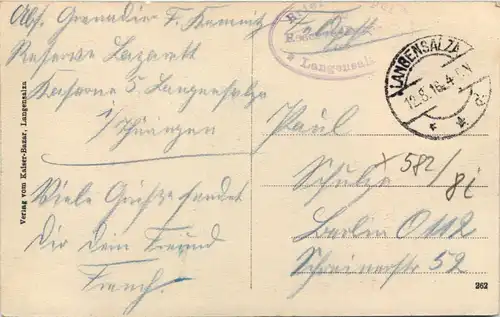 Abs. Grenadier F. Kemnitz
Reserve Lazarett
Kaserne 5. Langensalza
i/Thüringen
Viele Grüße sendet
Dir Dein Freund
Verlag vom Kaiser-Bazar, Langensalza
Langensalza
LANGENSALZA
12.8.16. 4-5N
Paul
Schulze
Berlin O112
Schreinerstr 52
582/8i
262